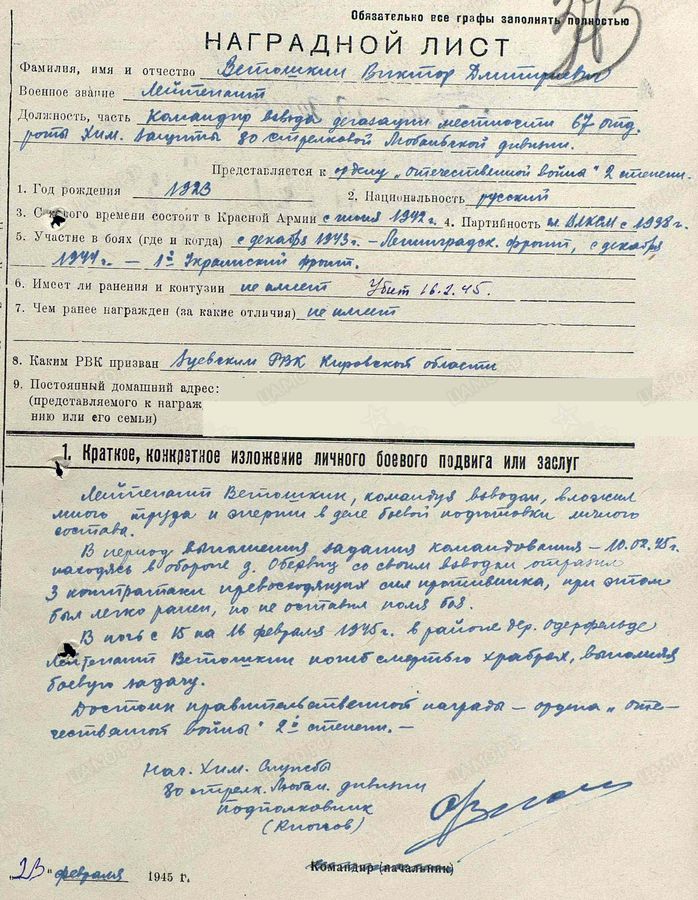 Обязательно все графы заполнять полностью
НАГРАДНОЙ ЛИСТ
Фамилия, имя и отчество Ветошкин Виктор Дмитриевич
Военное звание Лейтенант
Должность, часть Командир взвода дегазации местности 67 отд.
роты Хим. защиты 80 стрелковой Любаньской дивизии.
Представляется к ордену „Отечественной войны" 2 степени.
1. Год рождения 1923 2. Национальность русский
3. С какого времени состоит в Красной Армии с июня 1942 г. 4. Партийность чл. ВЛКСМ с 1938 г.
5. Участие в боях (где и когда) с декабря 1943 г. – Ленинградск. фронт, с декабря
1944 г. – 1й Украинский фронт.
6. Имеет ли ранения и контузии не имеет Убит 16.2.45.
7. Чем ранее награжден (за какие отличия) не имеет
8. Каким РВК призван РВК Кировской области
9. Постоянный домашний адрес:
(представляемого к награж
нию или его семьи)
1. Краткое, конкретное изложение личного боевого подвига или заслуг
Лейтенант Ветошкин, командуя взводом, вложил
много труда и энергии в деле боевой подготовки личного
состава.
В период выполнения задания командования – 10.02.45 г.
находясь в обороне д. Обервиц со своим взводом отразил
3 контратаки превосходящих сил противника, при этом
был легко ранен, но не оставил поля боя.
В ночь с 15 на 16 февраля 1945 г. в районе дер. Одерфельде
Лейтенант Ветошкин погиб смертью храбрых, выполняя
боевую задачу.
Достоин правительственной награды – ордена „Оте-
чественной войны" 2й степени. –
Нач. Хим. Службы
80 стрелк. Любан. дивизии
подполковник
Командир (начальник)
"23" февраля 1945 г.